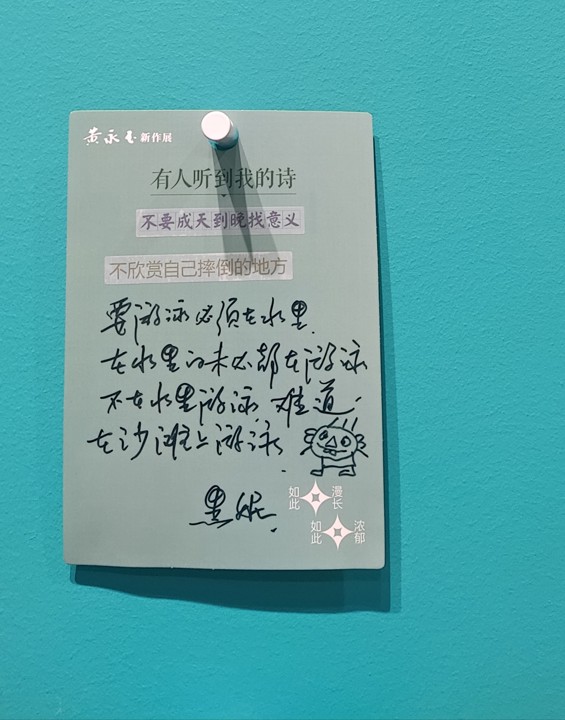 黄永玉新作展
有人听到我的诗
不要成天到晚找意义
不欣赏自己摔倒的地方
要游泳必须在水里
在水里的未必都在游泳
不在水里游泳 难道
在沙滩上游泳
黑妮
如此 漫长
如此 浓郁